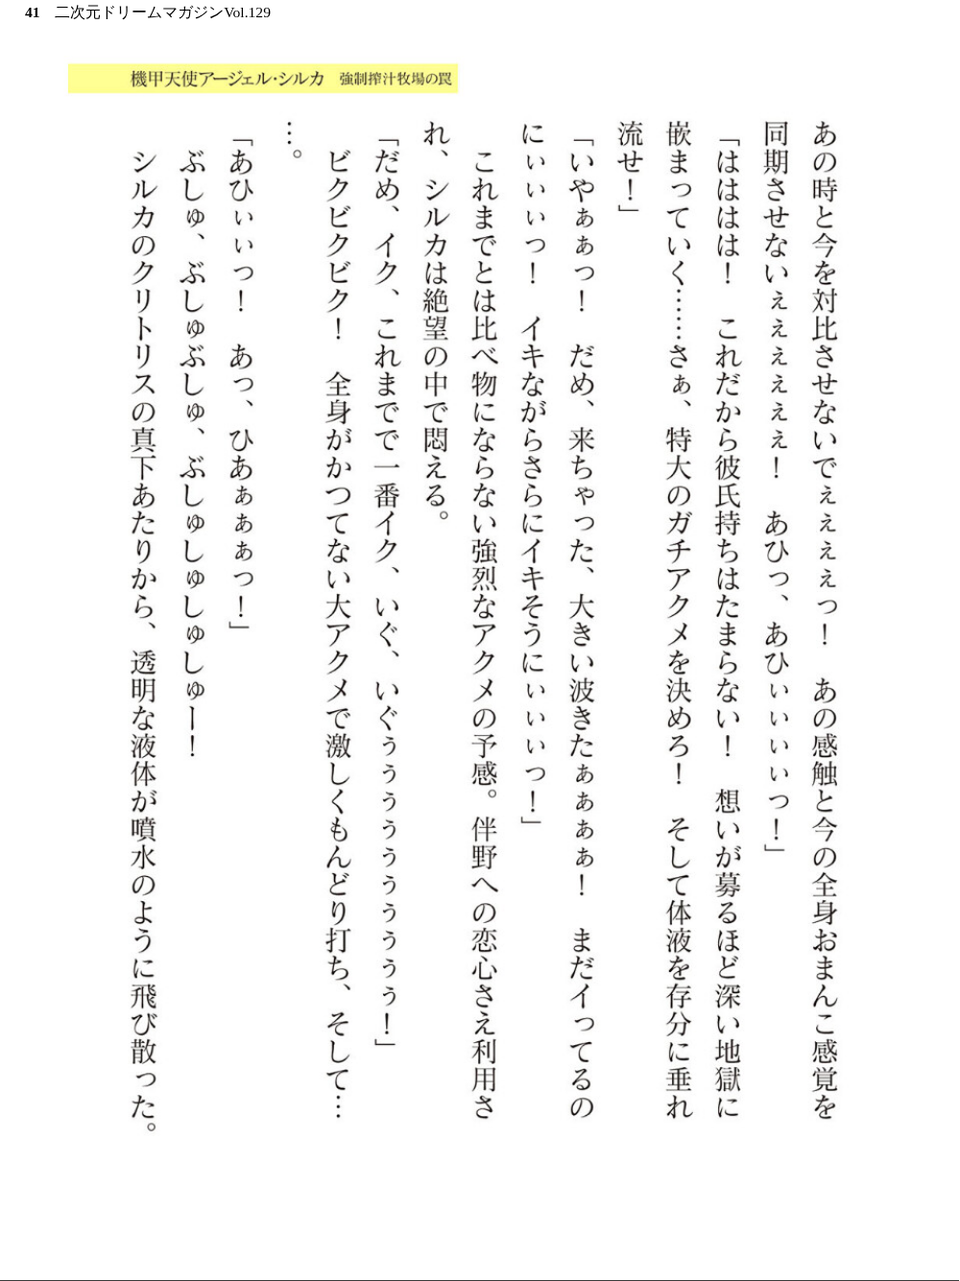 41 二次元ドリームマガジンVol.129
機甲天使アージェル・シルカ 強制搾汁牧場の罠
あの時と今を対比させないでぇぇぇぇっ！　あの感触と今の全身おまんこ感覚を
同期させないぇぇぇぇぇぇ！　あひっ、あひぃぃぃぃっ！」
「はははは！　これだから彼氏持ちはたまらない！　想いが募るほど深い地獄に
嵌まっていく……さぁ、特大のガチアクメを決めろ！　そして体液を存分に垂れ
流せ！」
「いやぁぁっ！　だめ、来ちゃった、大きい波きたぁぁぁぁ！　まだイってるの
にぃぃぃっ！　イキながらさらにイキそうにぃぃぃっ！」
　これまでとは比べ物にならない強烈なアクメの予感。伴野への恋心さえ利用さ
れ、シルカは絶望の中で悶える。
「だめ、イク、これまでで一番イク、いぐ、いぐぅぅぅぅぅぅぅぅぅぅ！」
　ビクビクビク！　全身がかつてない大アクメで激しくもんどり打ち、そして…
…。
「あひぃぃっ！　あっ、ひあぁぁぁっ！」
　ぶしゅ、ぶしゅぶしゅ、ぶしゅしゅしゅしゅー！
　シルカのクリトリスの真下あたりから、透明な液体が噴水のように飛び散った。